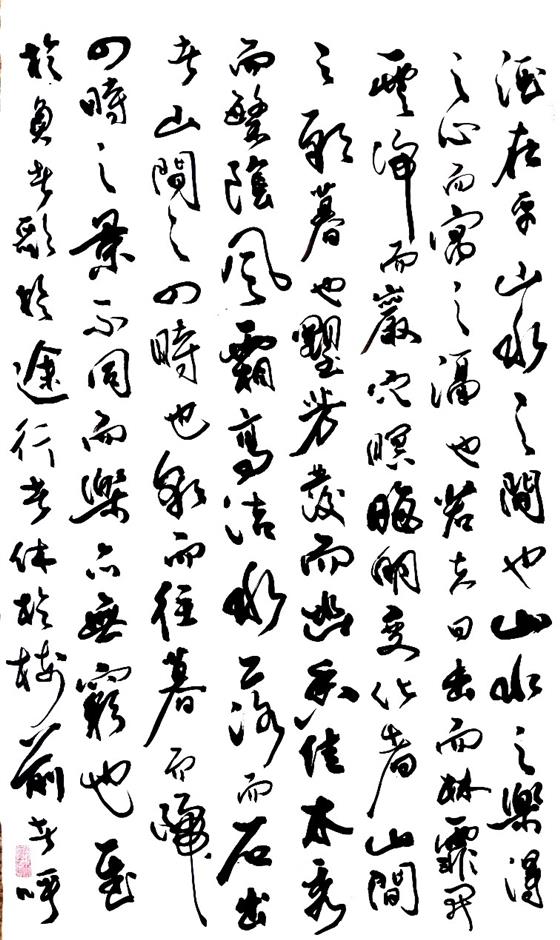 酒在乎山水之間也山水之樂得
之心而寓之酒也若夫日出而林霏開
雲歸而巖穴暝晦明變化者山間
之朝暮也野芳發而幽香佳木秀
而繁陰風霜高潔水落而石出
者山間之四時也朝而往暮而歸
四時之景不同而樂亦無窮也至
於負者歌於途行者休於樹前者呼